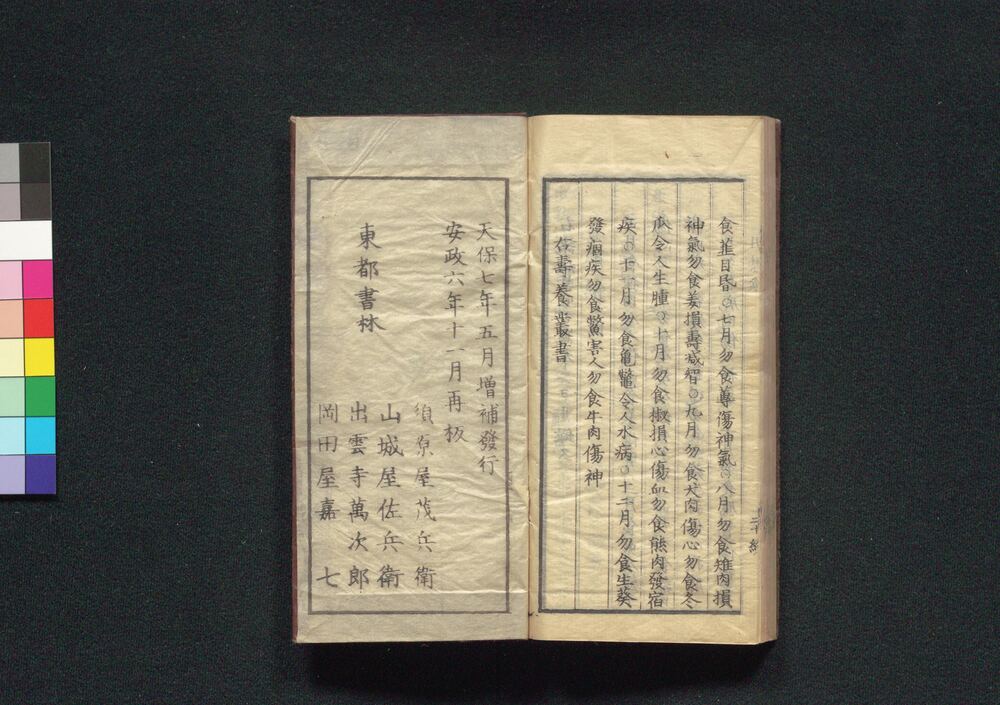 食韮目昏○七月勿食蓴傷神氣○八月勿食雉肉損
神氣勿食姜損壽減智○九月勿食犬肉傷心勿食冬
瓜令人生腫○十月勿食椒損心傷血勿食熊肉發宿
疾○十一月勿食亀鱉令人水病○十二月勿食生葵
發痼疾勿食鱉害人勿食牛肉傷神
壽養叢書
天保七年五月増補發行
安政六年十一月再板
東都書林
須原屋茂兵衛
山城屋佐兵衛
出雲寺萬次郎
岡田屋嘉七